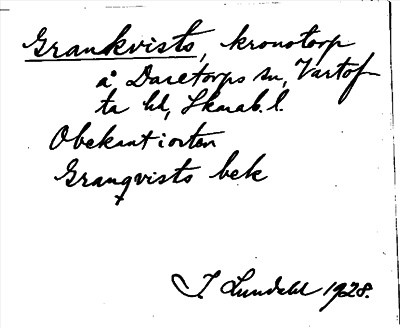 Grankvists, kronotorp
å Daretorps sn, Vartof
ta hd, Skarab. l.
Obekant i orten
Granqvists bek
I. Lundahl 1928.